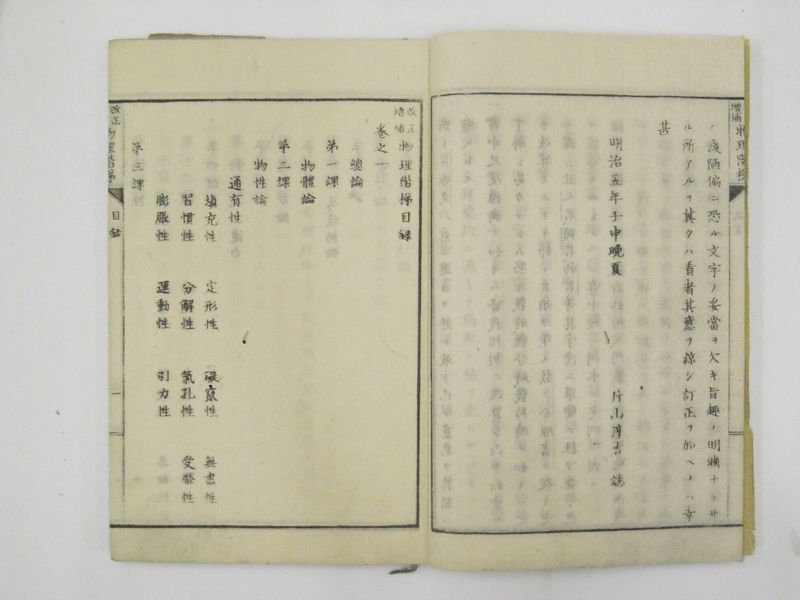 増補物理階梯
ノ淺陋偏ニ恐ル文字ノ妥當ヲ欠キ旨趣ノ明晰ナラサ
ル所アルヲ其タハ看者其意ヲ諒シ訂正ヲ加ヘナハ幸
甚
明治五年壬申晩夏 片山淳吉誌
改正増補物理階梯目録
卷之一
總論
第一課
物體論
第二課
物性論
通有性
填充性 定形性 礙竄性 無盡性
習慣性 分解性 氣孔性 受壓性
膨脹性 運動性 引力性
第三課
改正物理階梯 目録 一